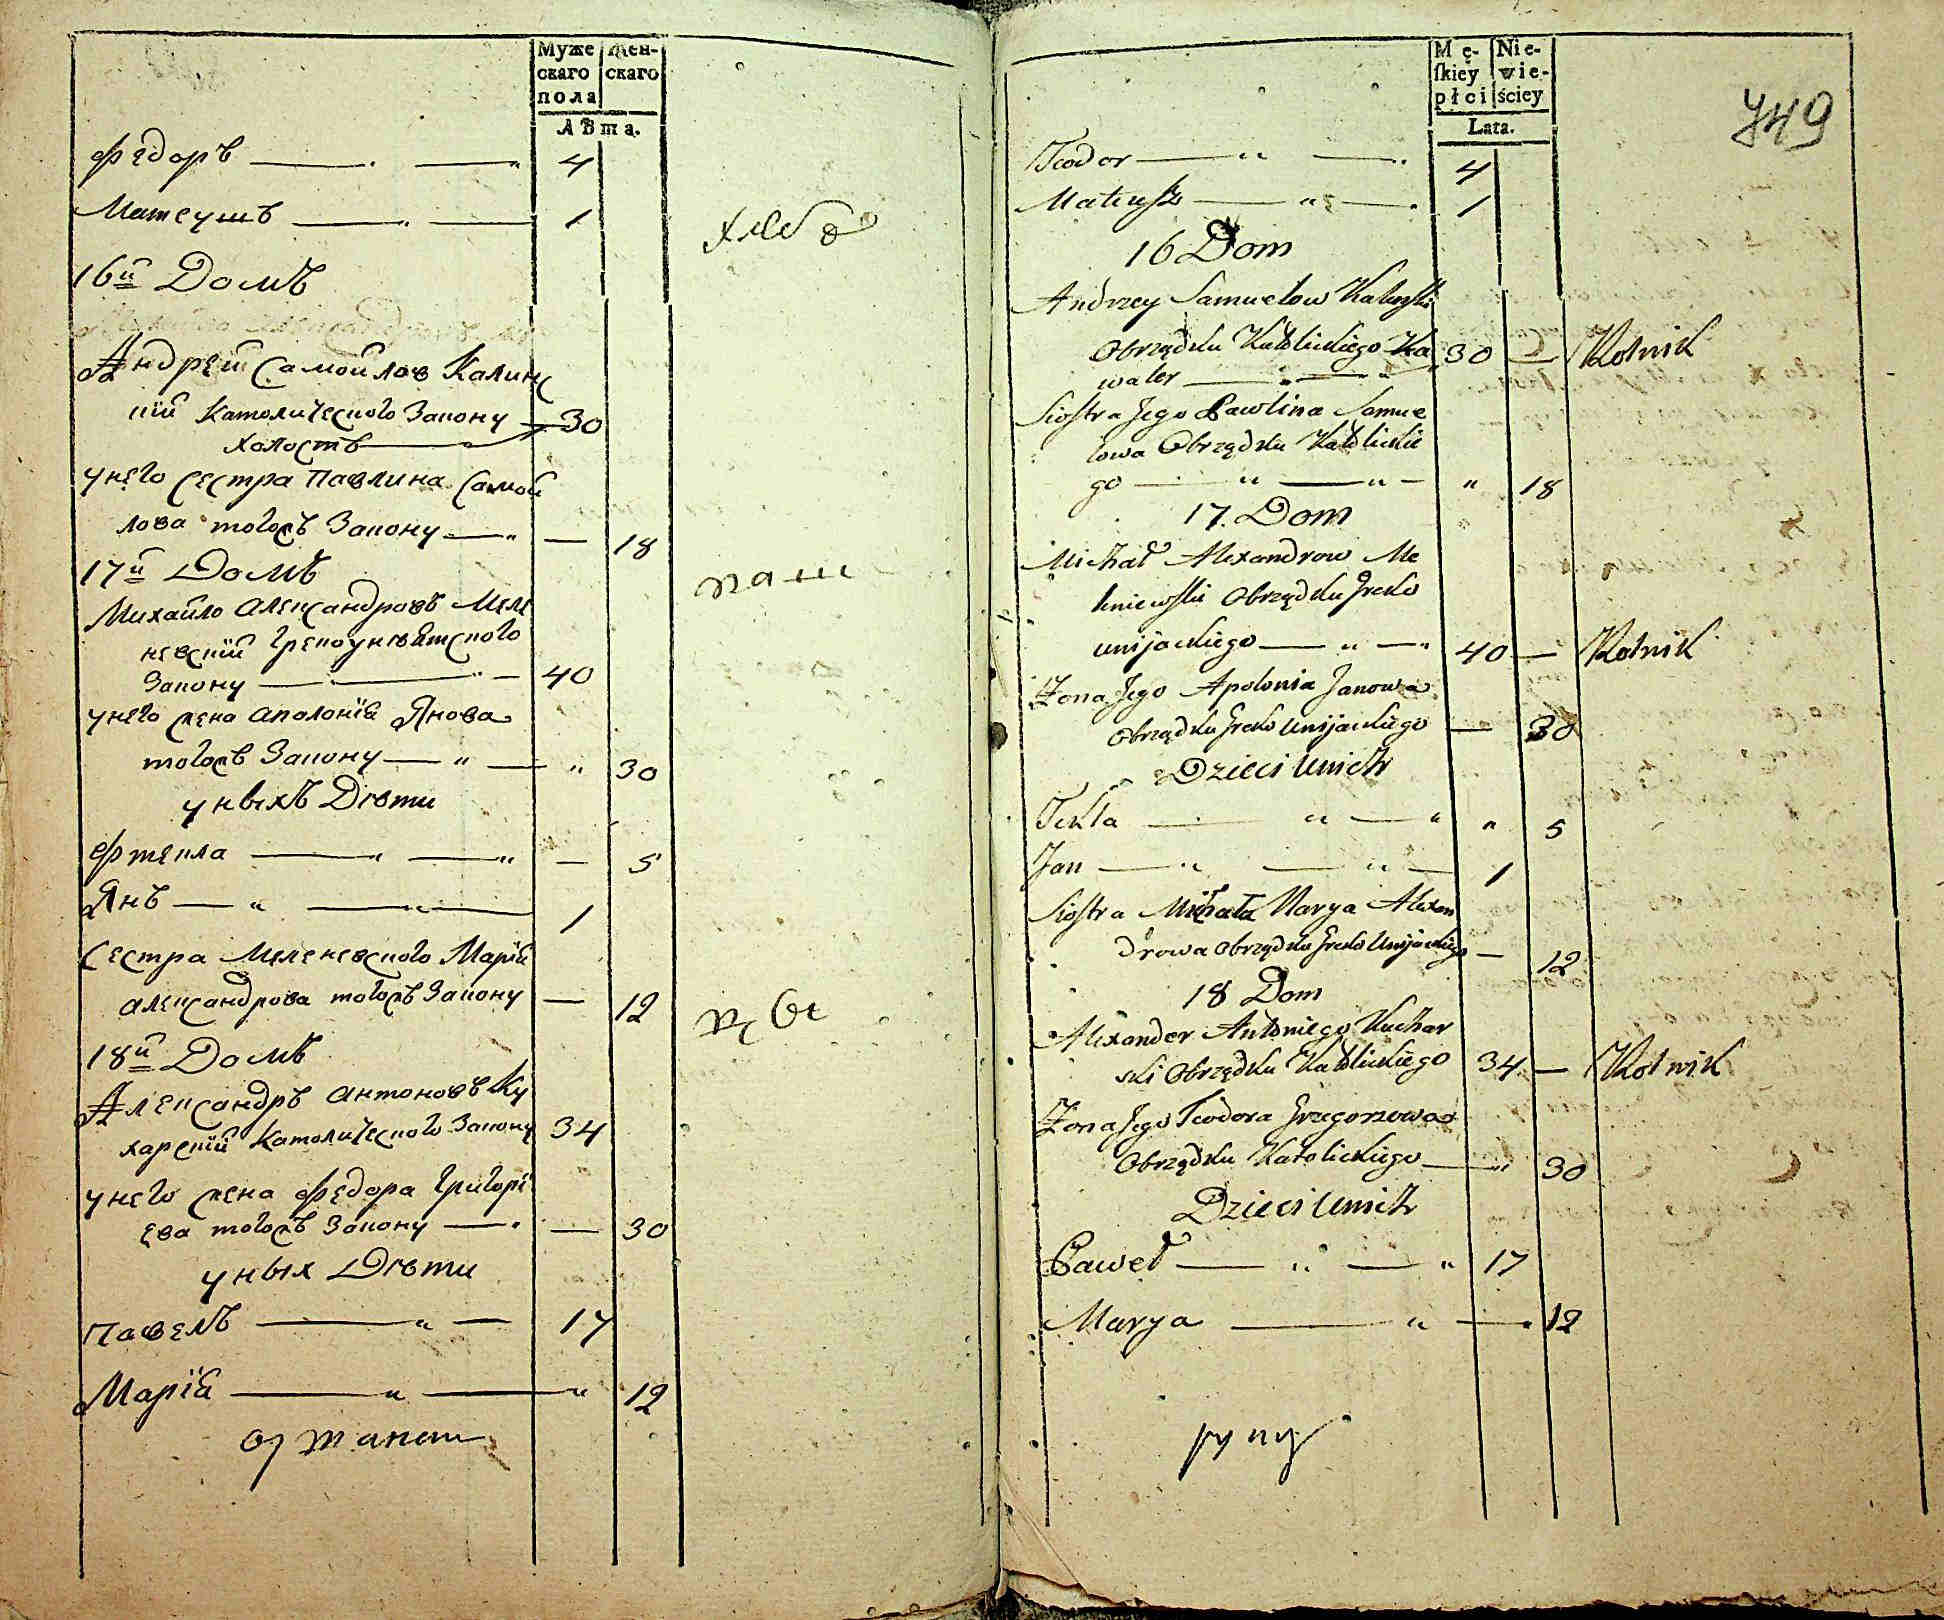 Муже
скаго
пола
Жен-
скаго
Лѣта.
Федоръ 4
Матеушъ 1
16й Домъ
Андрей Самойлов Калинс
кій Католического Закону 30
холостъ
унего сестра Павлина Самой
лова тогожъ Закону 18
17й Домъ
Михайло Александровъ Меле
невскій Грекоуніятского
Закону 40
унего жена Аполонія Янова
тогожъ Закону 30
уныхъ Дѣти
Фтекла 5
Янъ 1
Сестра Меленевского Марія
Александрова тогожъ Закону 12
18й Домъ
Александръ Антоновъ Ку
харскій Католического Закону 34
унего жена Федора Григорі
ева тогожъ Закону 30
уных Дѣти
Павелъ 17
Марія 12
Mę-
skiey
płci
Nie-
wie-
ściey
Lata.
749
Teodor 4
Mateusz 1
16 Dom
Andrzey Samuelow Kaliński
Obrządku Katolickiego Ka 30 Rolnik
waler
Siostra Jego Pawlina Samue
lowa Obrządku Katolickie
go 18
17. Dom
Michał Alexandrow Me
leniewski Obrządku Greko
unijackiego 40 Rolnik
Żona Jego Apolonia Janowa
Obrządku Greko Unijackiego 30
Dzieci Unich
Tekla 5
Jan 1
Siostra Michała Marya Alexan
drowa Obrządku Greko Unijackiego 12
18 Dom
Alexander Antoniego Kuchar
ski Obrządku Katolickiego 34 Rolnik
Żona Jego Teodora Grzegorzowa
Obrządku Katolickiego 30
Dzieci Unich
Paweł 17
Marya 12
руку